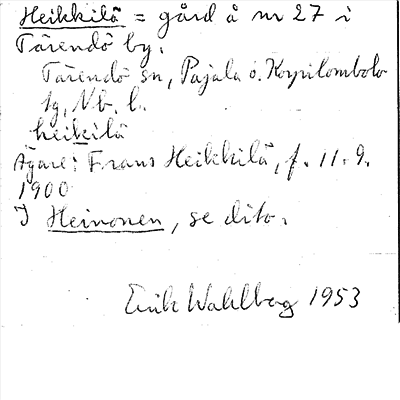 Heikkilä = gård å nr 27 i
Tärendö by.
Tärendö sn, Pajala o. Korpilombolo
tg, Nb. l.
heikilä
Ägare: Frans Heikkilä, f. 11.9.
1900
I Heinonen, se dito.
Erik Wahlberg 1953